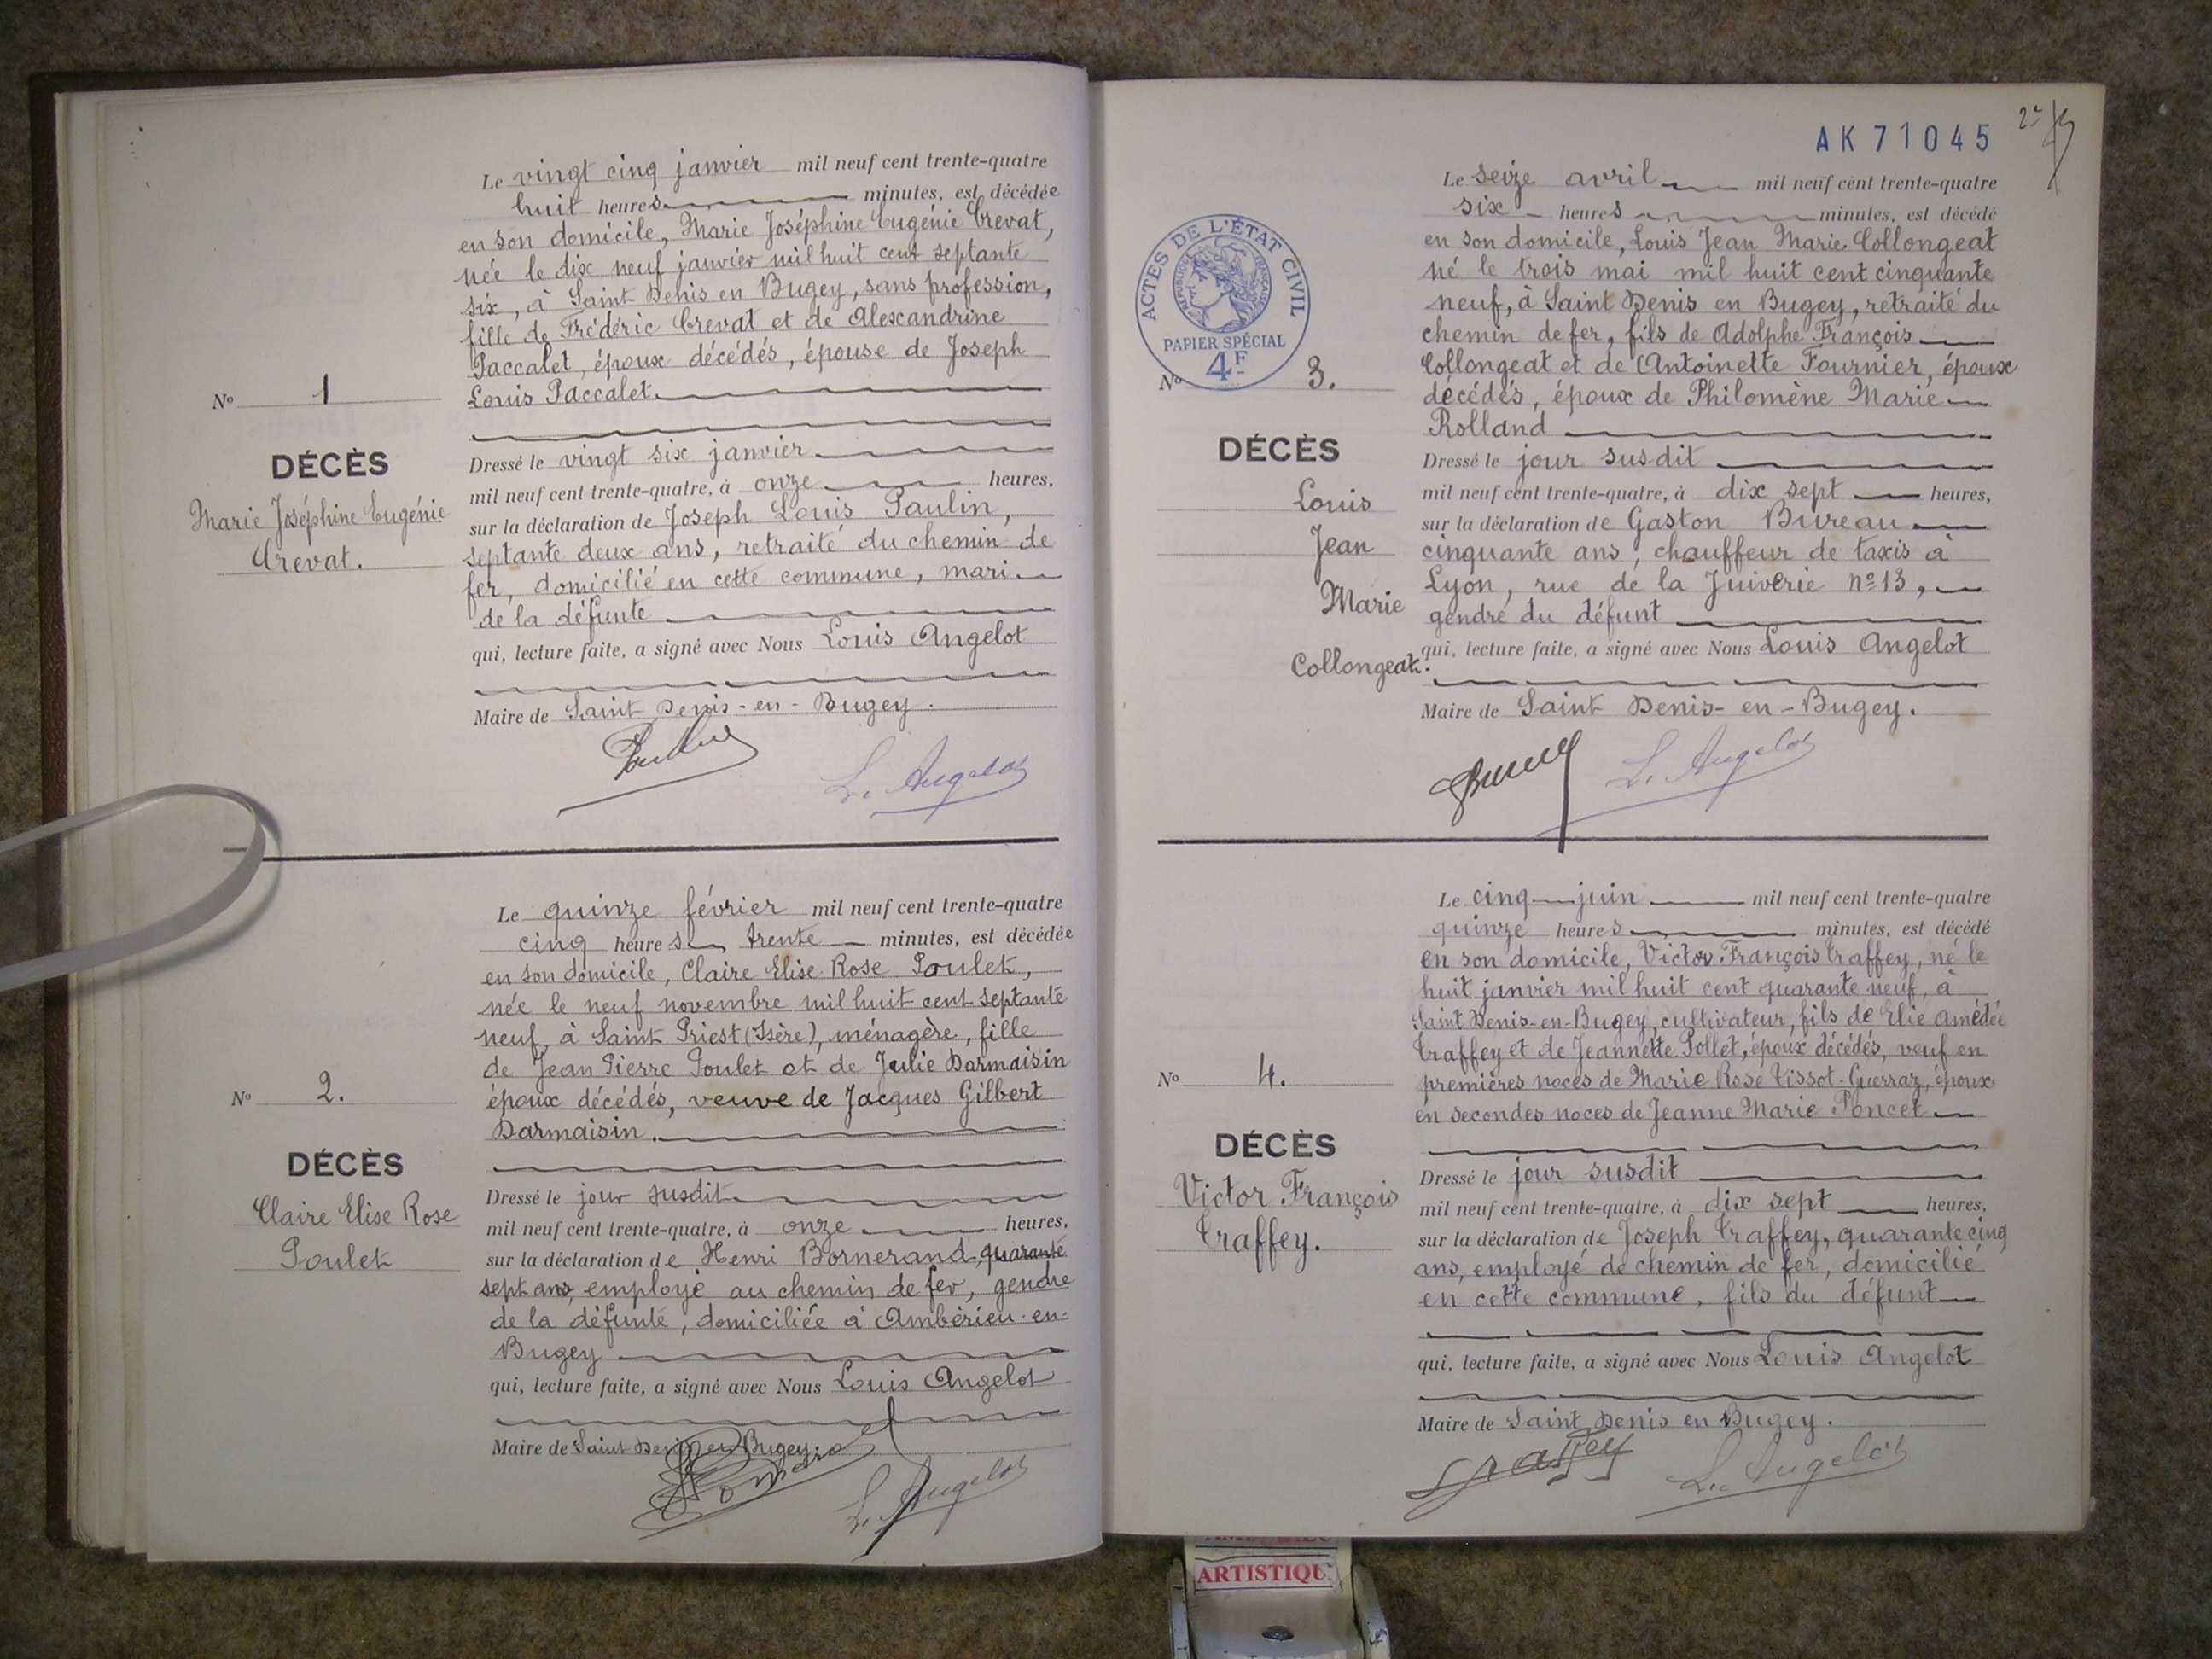 Le vingt cinq janvier mil neuf cent trente-quatre
huit heures minutes, est décédée
en son domicile, Marie Joséphine Eugénie Crevat,
née le dix neuf janvier mil huit cent septante
six, à Saint Denis en Bugey, sans profession,
fille de Frédéric Crevat et de Alexandrine
Paccalet, époux décédés, épouse de Joseph
Louis Paccalet.
No 1
DÉCÈS
Marie Joséphine Eugénie
Crevat.
Dressé le vingt six janvier
mil neuf cent trente-quatre, à onze heures,
sur la déclaration de Joseph Louis Paulin,
septante deux ans, retraité du chemin de
fer, domicilié en cette commune, mari
de la défunte
qui, lecture faite, a signé avec Nous Louis Angelot
Maire de Saint Denis-en-Bugey.
L. Angelot
Le quinze février mil neuf cent trente-quatre
cinq heures trente minutes, est décédée
en son domicile, Claire Elise Rose Poulet,
née le neuf novembre mil huit cent septante
neuf, à Saint Priest (Isère), ménagère, fille
de Jean Pierre Poulet et de Julie Darmaisin
époux décédés, veuve de Jacques Gilbert
Darmaisin.
No 2.
DÉCÈS
Claire Elise Rose
Poulet
Dressé le jour susdit
mil neuf cent trente-quatre, à onze heures,
sur la déclaration de Henri Bornerand, quarante
sept ans, employé au chemin de fer, gendre
de la défunte, domiciliée à Ambérieu-en-
Bugey
qui, lecture faite, a signé avec Nous Louis Angelot
Maire de Saint Denis en Bugey.
L. Angelot
AK 71045
2e
Le seize avril mil neuf cent trente-quatre
six heures minutes, est décédé
en son domicile, Louis Jean Marie Collongeat
né le trois mai mil huit cent cinquante
neuf, à Saint Denis en Bugey, retraité du
chemin de fer, fils de Adolphe François
Collongeat et de Antoinette Fournier, époux
décédés, époux de Philomène Marie
Rolland
ACTES DE L'ÉTAT CIVIL
RÉPUBLIQUE FRANÇAISE
PAPIER SPÉCIAL
4F
No 3.
DÉCÈS
Louis
Jean
Marie
Collongeat.
Dressé le jour susdit
mil neuf cent trente-quatre, à dix sept heures,
sur la déclaration de Gaston Bureau
cinquante ans, chauffeur de taxis à
Lyon, rue de la Juiverie no 13,
gendre du défunt
qui, lecture faite, a signé avec Nous Louis Angelot
Maire de Saint Denis-en-Bugey.
L. Angelot
Le cinq juin mil neuf cent trente-quatre
quinze heures minutes, est décédé
en son domicile, Victor François Traffey, né le
huit janvier mil huit cent quarante neuf, à
Saint Denis-en-Bugey, cultivateur, fils de Elie Amédée
Traffey et de Jeannette Pollet, époux décédés, veuf en
premières noces de Marie Rose Vissot-Guerraz, époux
en secondes noces de Jeanne Marie Poncet
No 4.
DÉCÈS
Victor François
Traffey.
Dressé le jour susdit
mil neuf cent trente-quatre, à dix sept heures,
sur la déclaration de Joseph Traffey, quarante cinq
ans, employé de chemin de fer, domicilié
en cette commune, fils du défunt
qui, lecture faite, a signé avec Nous Louis Angelot
Maire de Saint Denis en Bugey.
Traffey
L. Angelot
ARTISTIQU